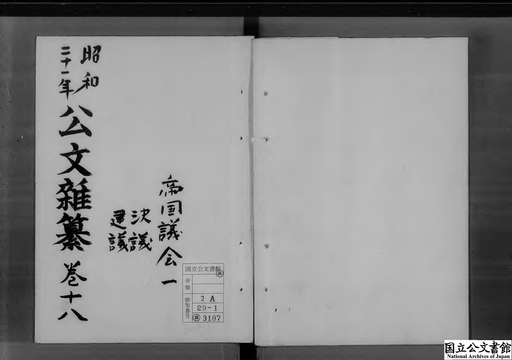 昭和
二十一年
公文雑纂 巻十八
帝国議会一
決議
建議
国立公文書館
分類
排架番号
2 A
29-1
3107
国立公文書館
National Archives of Japan